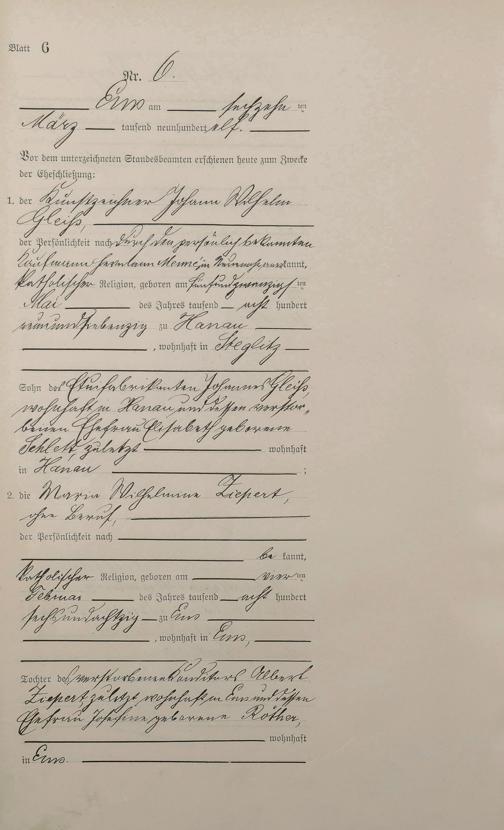 Blatt 6
Nr. 6.
Ems am sechzehn ten
März tausend neunhundert elf.
Vor dem unterzeichneten Standesbeamten erschienen heute zum Zwecke
der Eheschließung:
1. der Kunstzeichner Johann Wilhelm
Gleiß,
der Persönlichkeit nach durch den persönlich bekannten
Kaufmann Hermann in kannt,
katholischer Religion, geboren am fünfundzwanzigs ten
Mai des Jahres tausend acht hundert
neunundsiebenzig zu Hanau
, wohnhaft in Steglitz
Sohn des Etuifabrikanten Johannes Gleiß,
wohnhaft in Hanau und dessen verstor-
benen Ehefrau Elisabeth geborene
zuletzt wohnhaft
in Hanau ;
2. die Maria Wilhelmine Ziepert,
ohne Beruf,
der Persönlichkeit nach
be kannt,
katholischer Religion, geboren am vier ten
Februar des Jahres tausend acht hundert
sechsundachtzig zu Ems
, wohnhaft in Ems,
Tochter des verstorbenen Konditors Albert
Ziepert zuletzt wohnhaft in Ems und dessen
Ehefrau Josefine geborene Röther,
wohnhaft
in Ems.